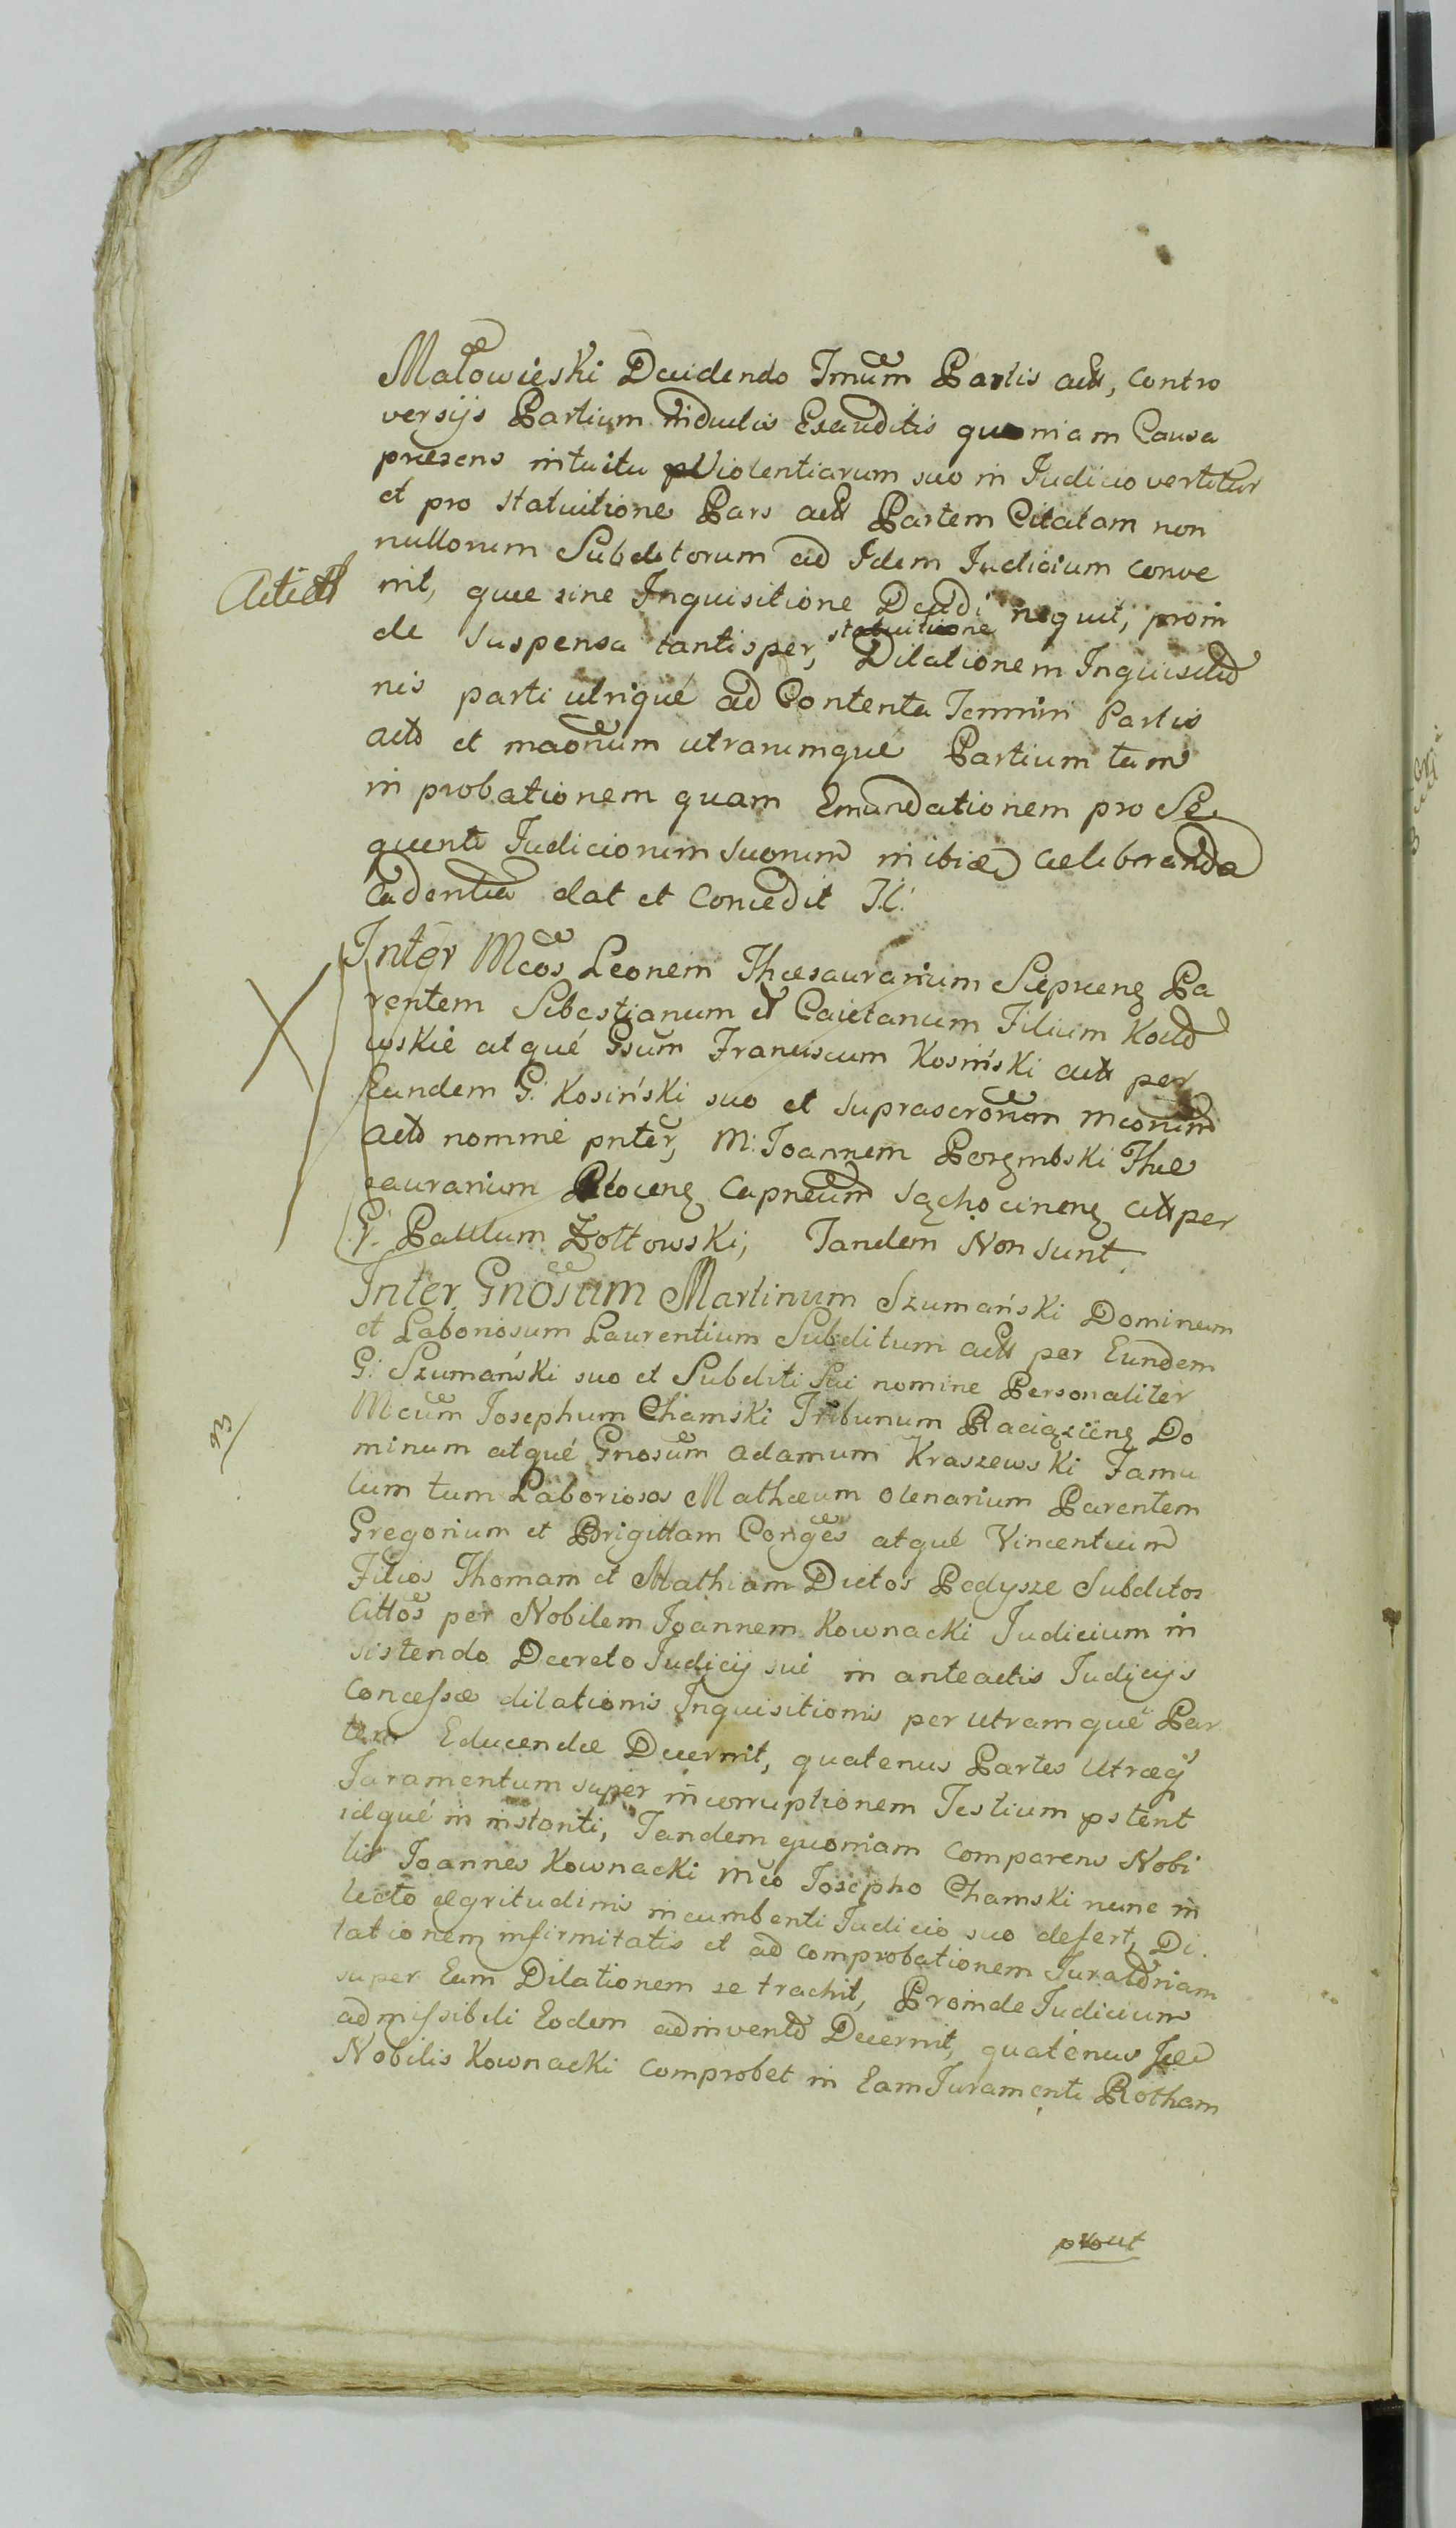 Małowieski Decidendo Tmūm Partis act, Contro
versijs Partium induclis Exauditis quoniam Causa
præsens intuitu Violentiarum suo in Iudicio vertitur
et pro statuitione Pars act Partem Citatam non
nullorum Subditorum ad Idem Iudicium conve
nit, quæ sine Inquisitione Decidi nequit, proin
de Suspensa tantisper, statuitione Dilationem Inquisitio
nis parti utriqué ad Contenta Termini Partis
act et utrarumqué Partium tam
in probationem quam Emundationem pro Se
quenti Iudiciorum Suorum inibi Celebranda
Cadentia dat et Concedit
Inter Mcos Leonem Thesaurarium Sieprceng Pa
rentem Sebestianum et Caietanum Filium
wskie atqué Gsum Franciscum Kosiński act per
Eundem G: Kosiński suo et suprascronom mcorum
act nomine pnter, M: Joannem Porembski The
saurarium Ploceng Capneum Sąchocineng citt per
G: Paulum Zołtowski, Tandem Non sunt
Inter Gnosum Martinum Szumański Dominum
et Laboriosum Laurentium Subditum act per Eundem
G: Szumański suo et Subditi Sui nomine Personaliter
Mcum Iosephum Chamski Tribunum Raciązieng Do
minum atqué Gnosum Adamum Kraszewski Famu
lum tum Laboriosos Mathæum olenarium Parentem
Gregorium et Brigittam Conges atqué Vincentium
Filios Thomam et Mathiam Dictos Pedysze Subditos
Cittos per Nobilem Ioannem Kownacki Iudicium in
sistendo Decreto Iudicij sui in anteactis Iudicijs
Concessæ dilationis Inquisitionis per utramqué Par
tem Educendæ Decernit, quatenus Partes Utræq
Iuramentum super incorruptionem Testium pstent
idqué in instanti, Tandem quoniam Comparens Nobi
lis Ioannes Kownacki Mco Iosepho Chamski nunc in
lecto ægritudinis incumbenti Iudicio suo defert, Di
lationem infirmitatis et ad comprobationem Iuratoriam
super Eam Dilationem se trachit, Proinde Iudicium
admissibili Eodem adinvento Decernit, quatenus
Nobilis Kownacki Comprobet in Eam Iuramenti Rotham
prout